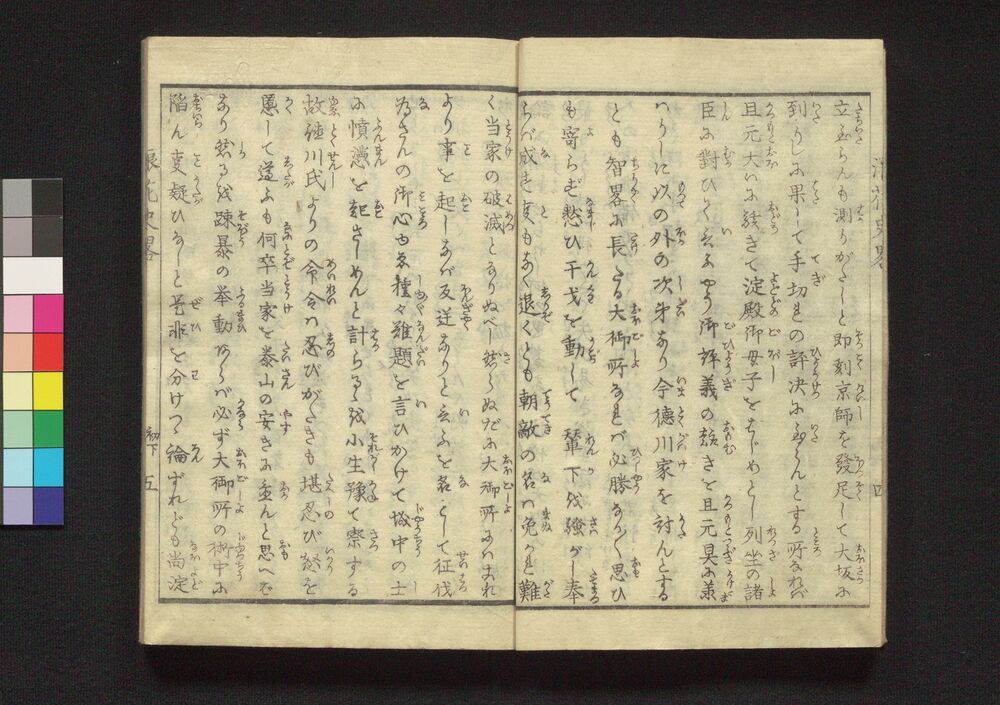 立至らんも測りがたしと即刻京師を發足して大坂に
到りしに果して手切れの評決に至らんとする所なれば
且元大いに驚きて淀殿御母子をはじめとし列坐の諸
臣に對ひて云ふやう御評義の趣きを且元具に承
はりしに以の外の次第なり今徳川家を討んとする
とも智畧に長たる大御所なれば必勝なりがたく思ひ
も寄らず愁ひ干戈を動して輦下を騒がし奉
らば成す事もあく退くとも朝敵の名は免かれ難
く当家の破滅となりぬべし然らぬだに大御所にはこれ
より事を起しなば反逆なりと云ふを名として征伐
なさんの御心ゆゑ種々難題を言ひかけて城中の士
に憤懣を起さしめんと計らるるを小生豫て察する
故徳川氏よりの令命は忍びがたきも堪忍び怒を
忍して遂ふも何卒当家を泰山の安きに並んと思へば
なり然るを疎暴の挙動あらば必ず大御所の術中に
陥ん事疑ひなしと是非を分けつつ論ずれども尚淀
浪花史畧
初下
五
四